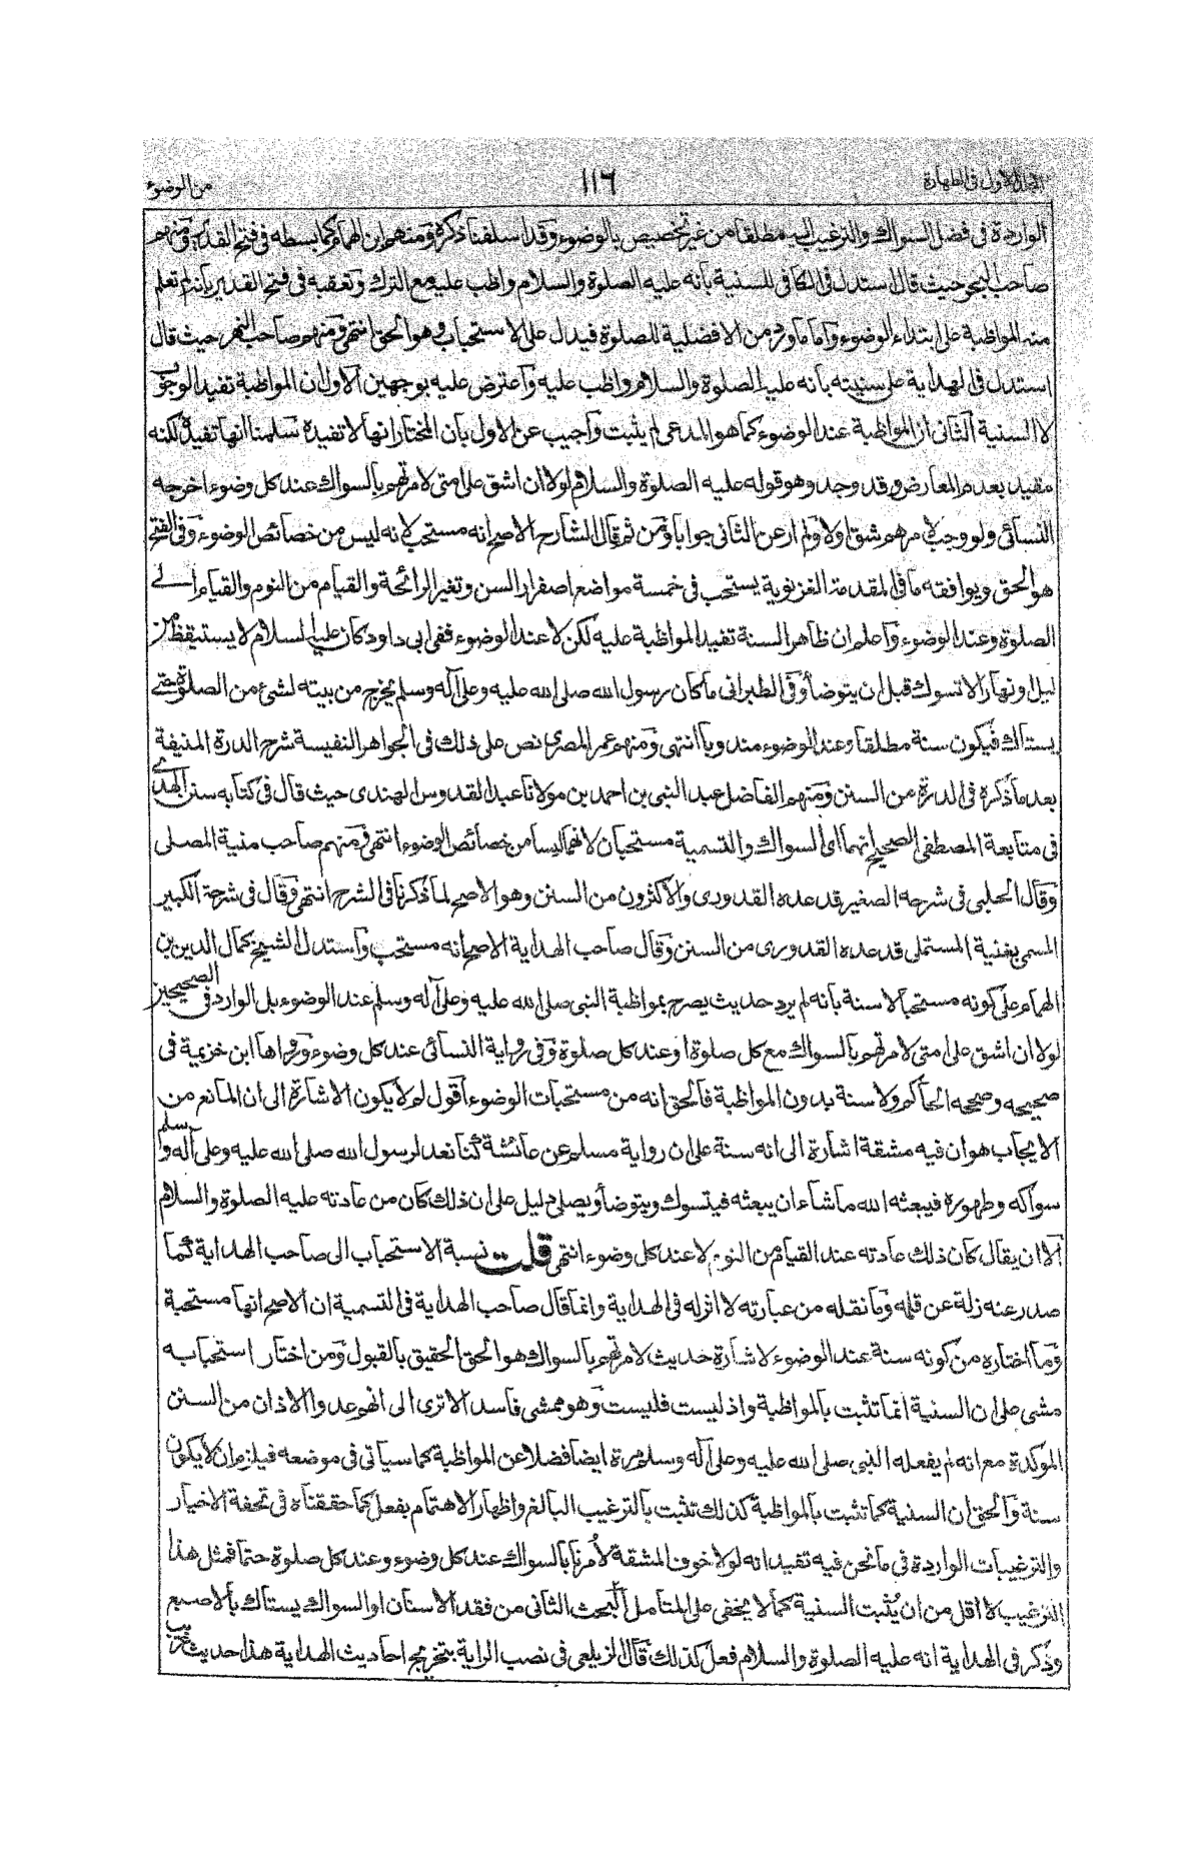 من الوضوء ١١٦ الاول في الطهارة
الواردة في فضل السواك والترغيب اليه مطلقا من غير تخصيص بالوضوء وقد اسلفنا ذكره ومنهم ابن الهمام كما بسطه في فتح القدير ومنهم
صاحب البحر حيث قال استدل في الكافي للسنية بانه عليه الصلوة والسلام واظب عليه مع الترك وتعقبه في فتح القدير بانه لم تعلم
منه المواظبة على ابتداء الوضوء واما ما ورد من الافضلية للصلوة فيدل على الاستحباب وهو الحق انتهى ومنهم صاحب النهر حيث قال
استدل في الهداية على سنيته بانه عليه الصلوة والسلام واظب عليه واعترض عليه بوجهين الاول ان المواظبة تفيد الوجوب
لا السنية الثاني ان المواظبة عند الوضوء كما هو المدعى لم يثبت واجيب عن الاول بان المختار انها لا تفيده سلمنا انها تفيده لكنه
مقيد بعدم المعارض وقد وجد وهو قوله عليه الصلوة والسلام لولا ان اشق على امتي لامرتهم بالسواك عند كل وضوء اخرجه
النسائي ولو وجب لامرهم شق اولا ولم ار عن الثاني جوابا ومن ثم قال الشارح الاصح انه مستحب لانه ليس من خصائص الوضوء وفي الفتح
هو الحق ويوافقه ما في المقدمة الغزنوية يستحب في خمسة مواضع اصفرار السن وتغير الرائحة والقيام من النوم والقيام الى
الصلوة وعند الوضوء واعلم ان ظاهر السنة تفيد المواظبة عليه لكن لا عند الوضوء ففي ابي داود كان عليه السلام لا يستيقظ من
ليل او نهار الا تسوك قبل ان يتوضأ وفي الطبراني ما كان رسول الله صلى الله عليه وعلى آله وسلم يخرج من بيته لشئ من الصلوة حتى
يستاك فيكون سنة مطلقا وعند الوضوء مندوبا انتهى ومنهم عمر المصري نص على ذلك في الجواهر النفيسة شرح الدرة المنيفة
بعد ما ذكره في الدرة من السنن ومنهم الفاضل عبد النبي بن احمد بن مولانا عبد القدوس الهندي حيث قال في كتابه سنن الهدى
في متابعة المصطفى الصحيح انهما اي السواك والتسمية مستحبان لانهما ليسا من خصائص الوضوء انتهى ومنهم صاحب منية المصلي
وقال الحلبي في شرحه الصغير قد عده القدوري والاكثرون من السنن وهو الاصح لما ذكرنا في الشرح انتهى وقال في شرحه الكبير
المسمى بغنية المستملي قد عده القدوري من السنن وقال صاحب الهداية الاصح انه مستحب واستدل الشيخ كمال الدين بن
الهمام على كونه مستحبا لا سنة بانه لم يرد حديث يصرح بمواظبة النبي صلى الله عليه وعلى آله وسلم عند الوضوء بل الوارد في الصحيحين
لولا ان اشق على امتي لامرتهم بالسواك مع كل صلوة او عند كل صلوة وفي رواية النسائي عند كل وضوء ورواها ابن خزيمة في
صحيحه وصححه الحاكم ولا سنة بدون المواظبة فالحق انه من مستحبات الوضوء اقول لم لا يكون الاشارة الى ان المانع من
الايجاب هو ان فيه مشقة اشارة الى انه سنة على ان رواية مسلم عن عائشة كنا نعد لرسول الله صلى الله عليه وعلى آله وسلم
سواكه وطهوره فيبعثه الله ما شاء ان يبعثه فيتسوك ويتوضأ ويصلي دليل على ان ذلك كان من عادته عليه الصلوة والسلام
الا ان يقال كان ذلك عادته عند القيام من النوم لا عند كل وضوء انتهى قلت نسبة الاستحباب الى صاحب الهداية كما
صدر عنه زلة عن قلمه وما نقله من عبارته لا اثر له في الهداية وانما قال صاحب الهداية في التسمية ان الاصح انها مستحبة
وما اختاره من كونه سنة عند الوضوء لاشارة حديث لامرتهم بالسواك هو الحق الحقيق بالقبول ومن اختار استحبابه
مشى على ان السنية انما تثبت بالمواظبة واذ ليست فليست وهو ممشى فاسد الا ترى الى انهم عدوا الاذان من السنن
الموكدة مع انه لم يفعله النبي صلى الله عليه وعلى آله وسلم مرة ايضا فضلا عن المواظبة كما سياتي في موضعه فيلزم ان لا يكون
سنة والحق ان السنية كما تثبت بالمواظبة كذلك تثبت بالترغيب البالغ واظهار الاهتمام بفعل كما حققناه في تحفة الاخيار
والترغيبات الواردة في ما نحن فيه تفيد انه لولا خوف المشقة لأمرنا بالسواك عند كل وضوء وعند كل صلوة حتما فمثل هذا
الترغيب لا اقل من ان يُثبت السنية كما لا يخفى على المتامل البحث الثاني من فقد الاسنان او السواك يستاك بالاصبع
وذكر في الهداية انه عليه الصلوة والسلام فعل كذلك قال الزيلعي في نصب الراية بتخريج احاديث الهداية هذا حديث غريب